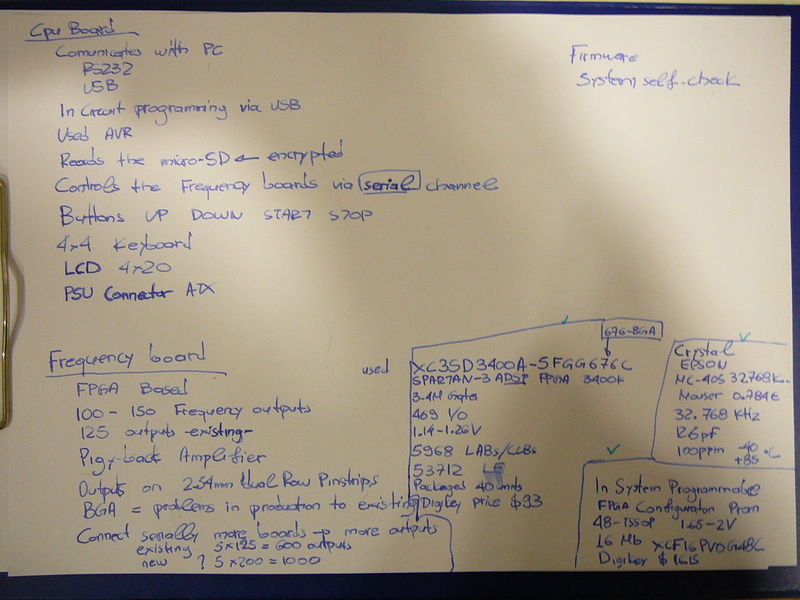 Cpu Board
Comunicates with PC
RS232
USB
In Circuit programming via USB
Used AVR
Reads the micro-SD ← encrypted
Controls the Frequency boards via serial channel
Buttons UP DOWN START STOP
4x4 Keyboard
LCD 4x20
PSU Connector ATX
Firmware
System self-check
Frequency board
FPGA Based
100-150 Frequency outputs
125 outputs -existing-
Pigy-back Amplifier
Outputs on 2.54mm dual Row Pinstrips
BGA = problems in production to existing
Connect serially more boards → more outputs
existing 5x125 = 600 outputs
new ? 5x200 = 1000
676-BGA
used XC3SD3400A-5FGG676C
SPARTAN-3 ADSP FPGA 3400K
3.4M Gates
469 I/O
1.14-1.26V
5968 LABs/CLBs
53712
Packages 40 units
Digikey price $93
Crystal
EPSON
MC-405 32.768K
Mouser 0.784€
32.768 KHz
12.5pF
100ppm -40 +85 °C
In System Programmable
FPGA Configuration Prom
48-TSSOP 1.65-2V
16 Mb XCF16PVOG48C
Digikey $ 16.15